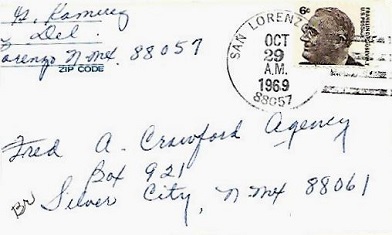 G. Ramirez
Del.
Lorenzo N Mex. 88057
ZIP CODE
SAN LORENZO
OCT
29
A.M.
1969
88057
6¢
FRANKLIN D. ROOSEVELT
Fred A. Crawford Agency
Box 921
Silver City, N Mex 88061
Br